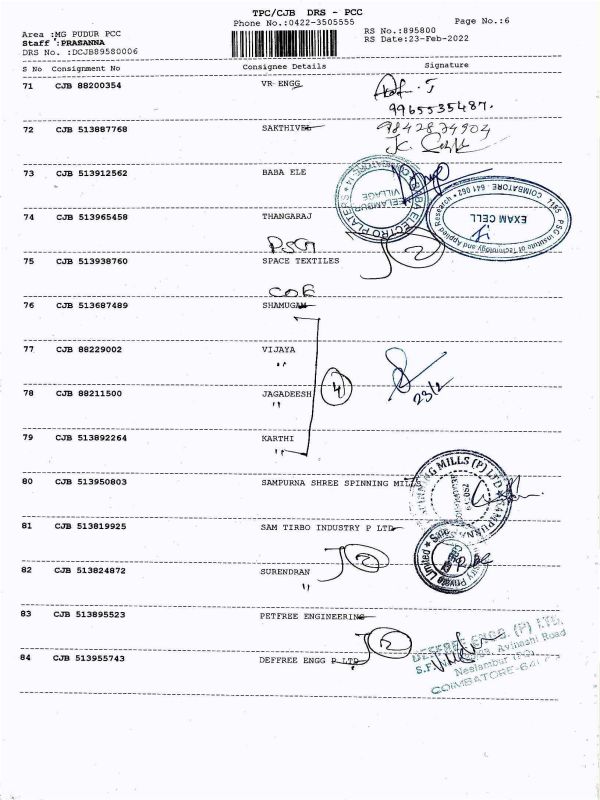 TPC/CJB DRS - PCC
Phone No.:0422-3505555
Page No.:6
Area :MG PUDUR PCC
Staff :PRASANNA
DRS No. :DCJB89580006
RS No.:895800
RS Date:23-Feb-2022
S No Consignment No Consignee Details Signature
71 CJB 88200354 VR ENGG
9965535487.
72 CJB 513887768 SAKTHIVEL
9842874904
73 CJB 513912562 BABA ELE
BABA ELECTRO PLATERS
NEELAMBUR VILLAGE
7155 PSG Institute of Technology and Applied Research • COIMBATORE 641 062
EXAM CELL
74 CJB 513965458 THANGARAJ
PSG
2
75 CJB 513938760 SPACE TEXTILES
COE
76 CJB 513687489 SHAMUGAM
77 CJB 88229002 VIJAYA
"
4
23/2
78 CJB 88211500 JAGADEESH
"
79 CJB 513892264 KARTHI
"
80 CJB 513950803 SAMPURNA SHREE SPINNING MILLS
SPINNING MILLS (P) LTD
81 CJB 513819925 SAM TIRBO INDUSTRY P LTD
2
Private Limited
82 CJB 513824872 SURENDRAN
"
83 CJB 513895523 PETFREE ENGINEERING
2
84 CJB 513955743 DEFFREE ENGG P LTD
DEFFREE ENGG. (P) LTD,
Avinashi Road
Neelambur (PO)
COIMBATORE-641